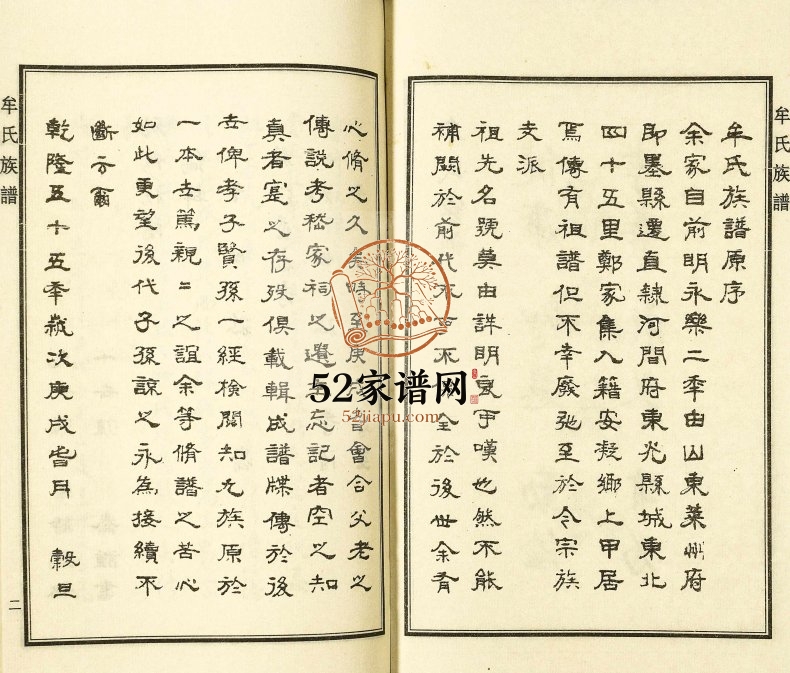 牟氏族譜
牟氏族譜原序
余家自前明永樂二年由山東萊州府
即墨縣遷直隸河間府東光縣城東北
四十五里鄭家集入籍安凝鄉上甲居
焉傳有祖譜但不幸廢弛至於今宗族
支派
祖先名號莫由詳明良可嘆也然不能
補闕於前代不可不全於後世余有
心脩之久矣時至庚戌皆會合父老之
傳說考嵇家祠之遺忘記者空之知
真者寔之存歿俱載輯成譜牒傳於後
世俾孝子賢孫一經檢閱知九族原於
一本世篤親二之誼余等脩譜之苦心
如此更望後代子孫諒之永為接續不
斷云爾
乾隆五十五年歲次庚戌皆月 穀旦
牟氏族譜
二
52家谱网
52jiapu.com